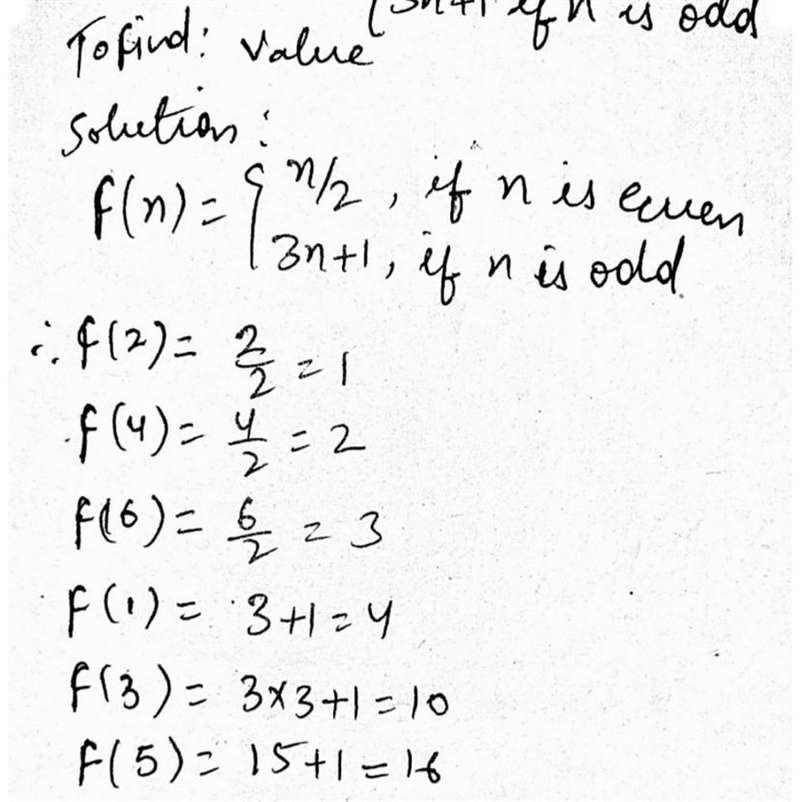 (3n+1 if n is odd
To find: Value
Solution:
f(n) = { n/2, if n is even
3n+1, if n is odd.
∴ f(2) = 2/2 = 1
f(4) = 4/2 = 2
f(6) = 6/2 = 3
f(1) = 3+1 = 4
f(3) = 3×3+1 = 10
f(5) = 15+1 = 16